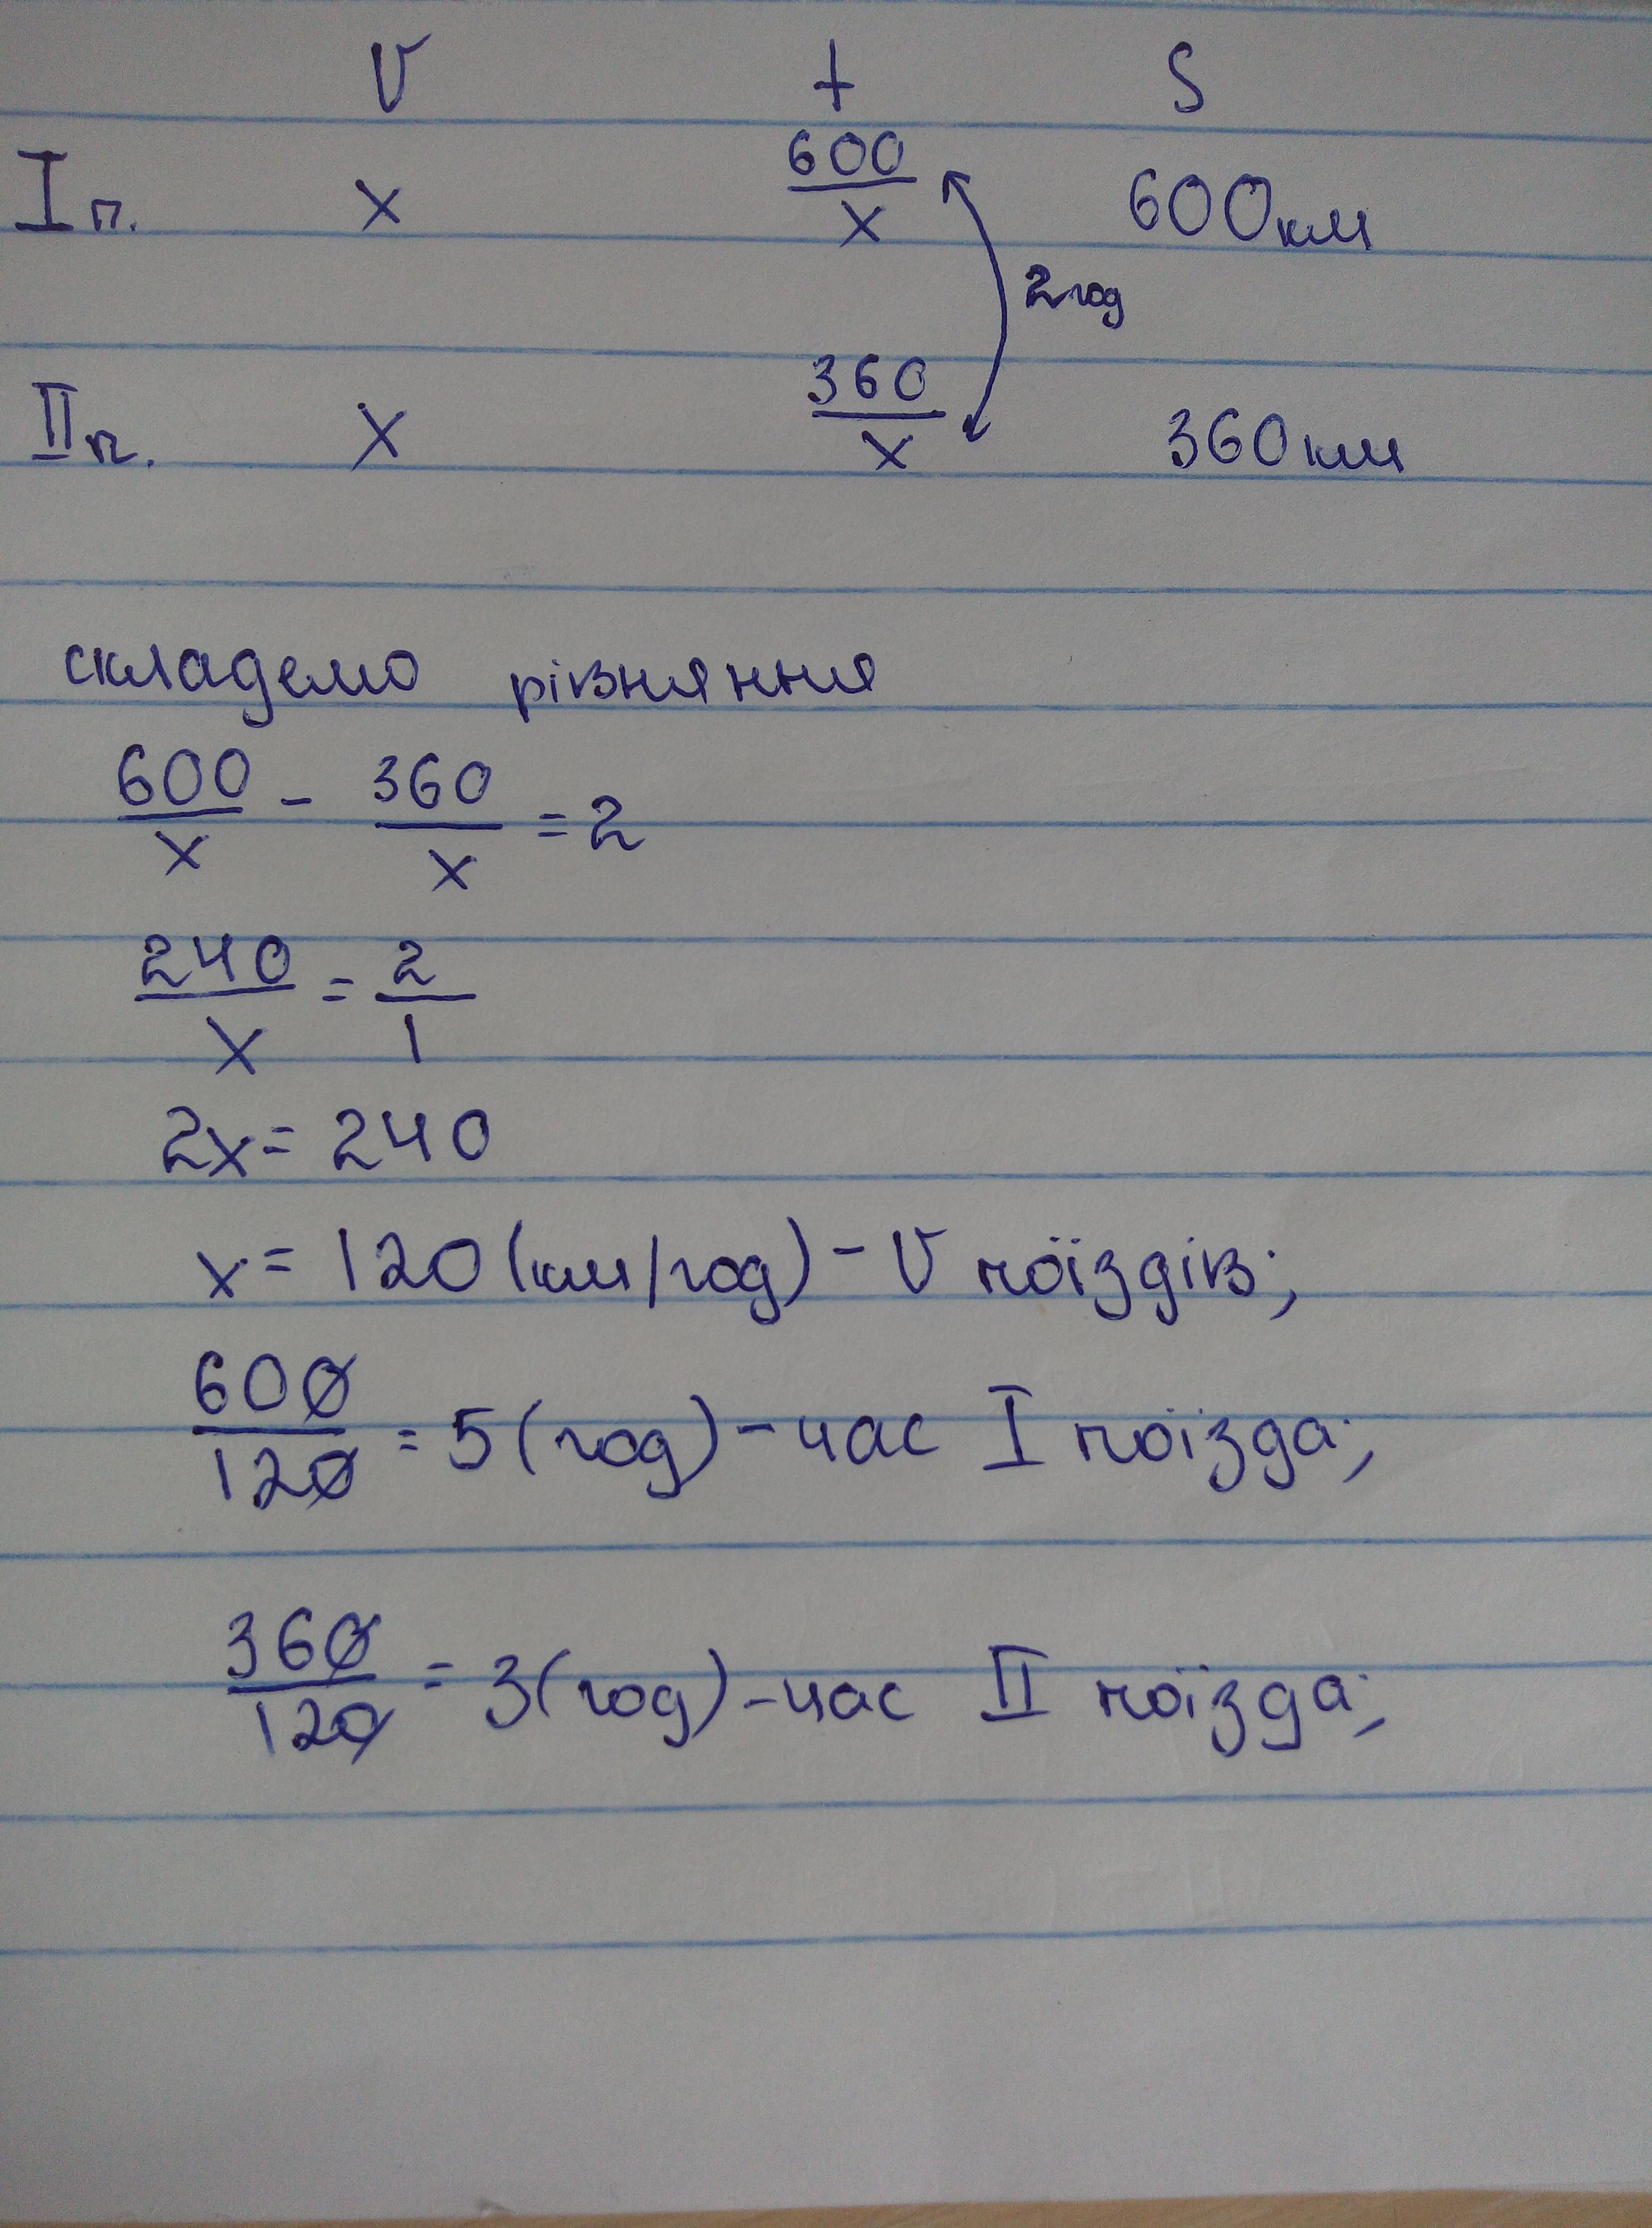 V t S
I п. x 600/x 600км
2год
II п. x 360/x 360км
складемо рівняння
600/x - 360/x = 2
240/x = 2/1
2x = 240
x = 120 (км/год) - V поїздів;
600/120 = 5 (год) - час I поїзда;
360/120 = 3 (год) - час II поїзда;